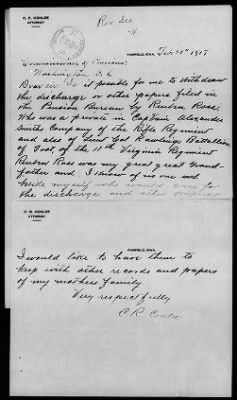 Rev See
C. R. CONLEE
ATTORNEY
PANFIELD, IOWA. Feb 21st 1917
Commissioner of Pensions
Washington, D. C.
Dear Sir Is it possible for me to withdraw
the discharge or other papers filed in
the Pension Bureau by Reuben Rose.
Who was a private in Captain Alexander
Smiths Company of the Rifle Regiment
and also of Lieut Col Rawlings Battalion
of Foot, of the 11th Virginia Regiment
Reuben Rose was my great great Grand-
father and I know of no one
myself who would care for
the discharge and other
C. R. CONLEE
ATTORNEY
IOWA.
I would like to have them to
keep with other records and papers
of my mothers family
Very respectfully
C R Conlee